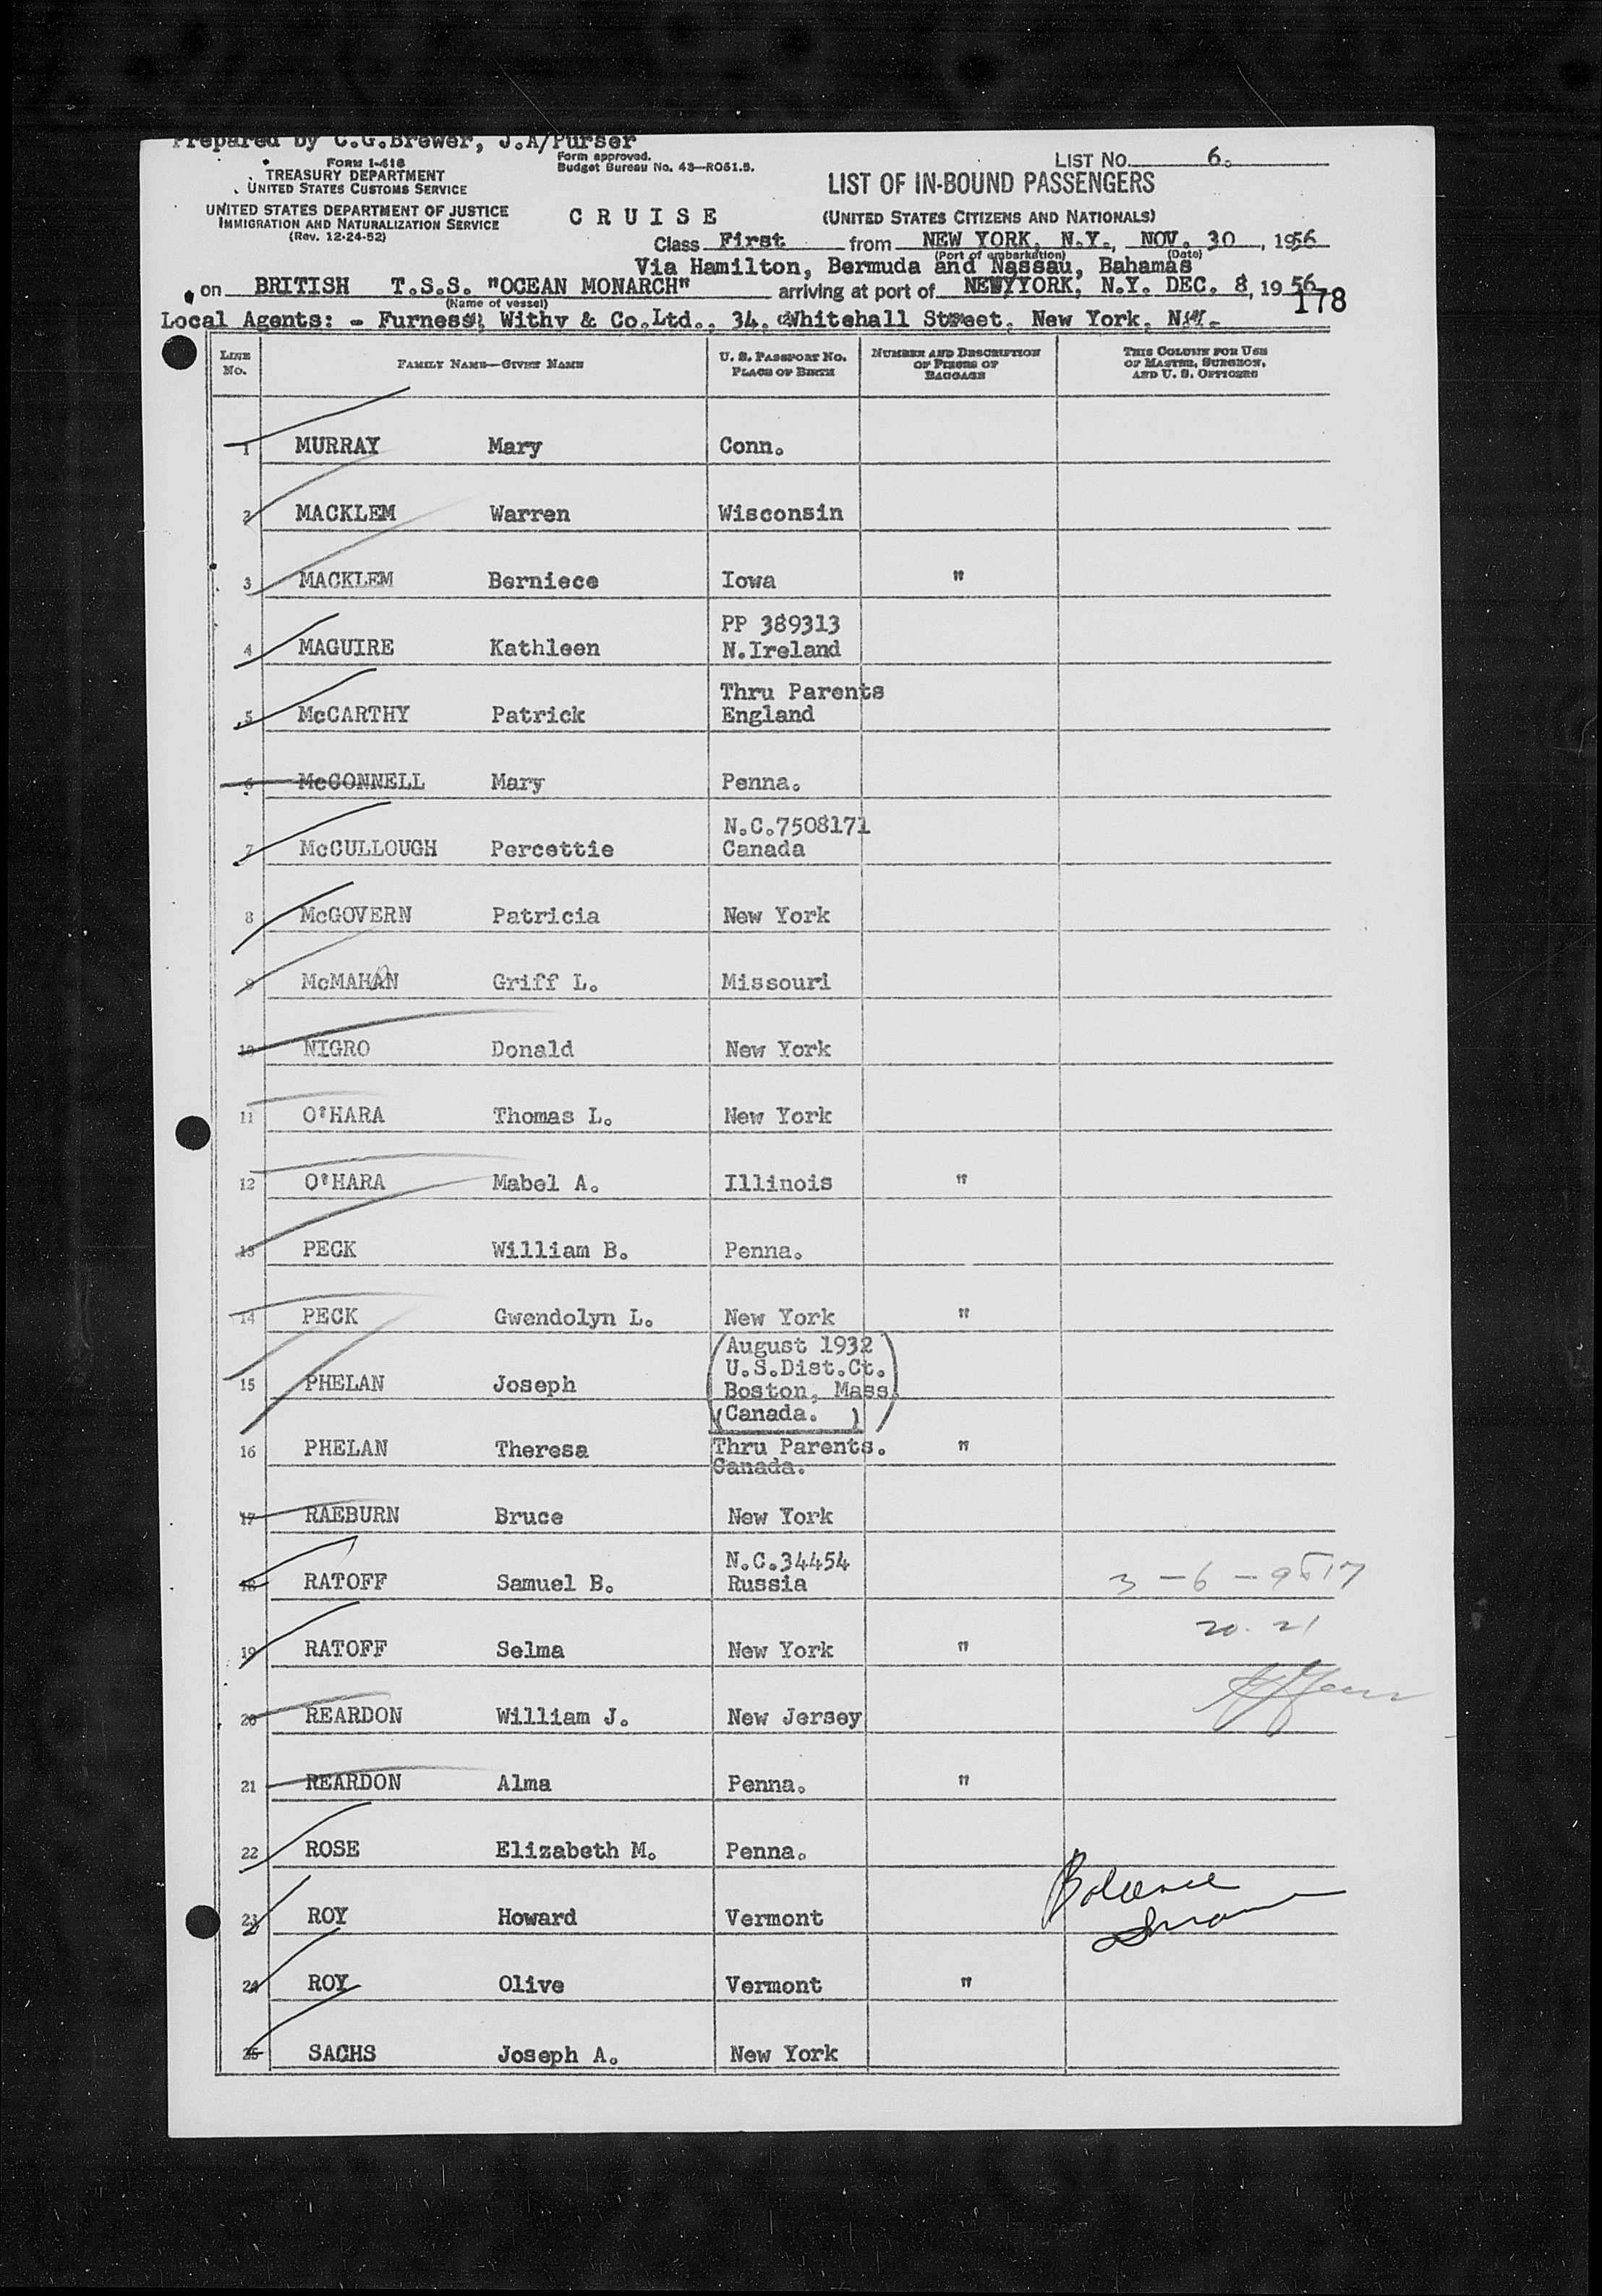 Prepared by C.G.Brewer, J.A/Purser
FORM I-418
TREASURY DEPARTMENT
UNITED STATES CUSTOMS SERVICE
UNITED STATES DEPARTMENT OF JUSTICE
IMMIGRATION AND NATURALIZATION SERVICE
(Rev. 12-24-52)
Form approved.
Budget Bureau No. 43—RO61.5.
CRUISE
LIST NO. 6.
LIST OF IN-BOUND PASSENGERS
(UNITED STATES CITIZENS AND NATIONALS)
Class First from NEW YORK, N.Y., NOV. 30, 1956
(Port of embarkation) (Date)
Via Hamilton, Bermuda and Nassau, Bahamas
on BRITISH T.S.S. "OCEAN MONARCH" arriving at port of NEW YORK, N.Y. DEC. 8, 1956
(Name of vessel)
178
Local Agents: - Furness, Withy & Co.Ltd., 34, Whitehall Street, New York, N.Y.
LINE NO.
FAMILY NAME—GIVEN NAME
U. S. PASSPORT NO.
PLACE OF BIRTH
NUMBER AND DESCRIPTION
OF PIECES OF
BAGGAGE
THIS COLUMN FOR USE
OF MASTER, SURGEON,
AND U. S. OFFICERS
1 MURRAY Mary Conn.
2 MACKLEM Warren Wisconsin
3 MACKLEM Berniece Iowa "
PP 389313
4 MAGUIRE Kathleen N.Ireland
Thru Parents
5 McCARTHY Patrick England
6 McCONNELL Mary Penna.
N.C.7508171
7 McCULLOUGH Percettie Canada
8 McGOVERN Patricia New York
9 McMAHAN Griff L. Missouri
10 NIGRO Donald New York
11 O'HARA Thomas L. New York
12 O'HARA Mabel A. Illinois "
13 PECK William B. Penna.
14 PECK Gwendolyn L. New York "
(August 1932)
U.S.Dist.Ct.
15 PHELAN Joseph Boston, Mass.
(Canada. )
16 PHELAN Theresa Thru Parents. "
Canada.
17 RAEBURN Bruce New York
N.C.34454
18 RATOFF Samuel B. Russia 3-6-9517
20. 21
19 RATOFF Selma New York "
20 REARDON William J. New Jersey
21 REARDON Alma Penna. "
22 ROSE Elizabeth M. Penna.
Balance
23 ROY Howard Vermont
24 ROY Olive Vermont "
25 SACHS Joseph A. New York